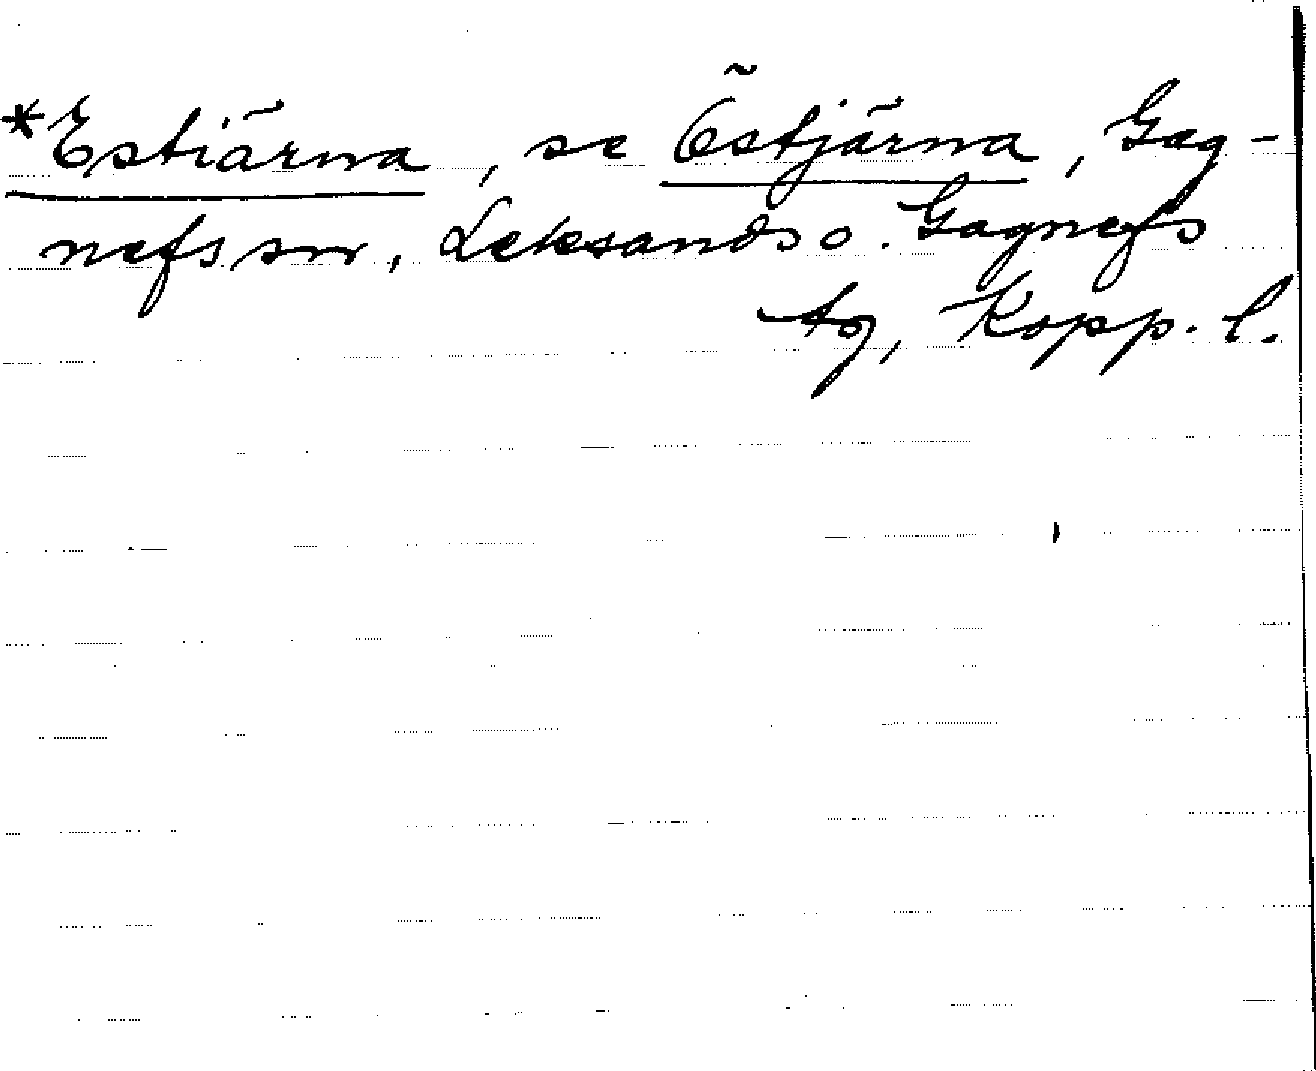 *Estiärna, se Östjärna, Gag-
nefs sn, Leksands o. Gagnefs
tg, Kopp. l.